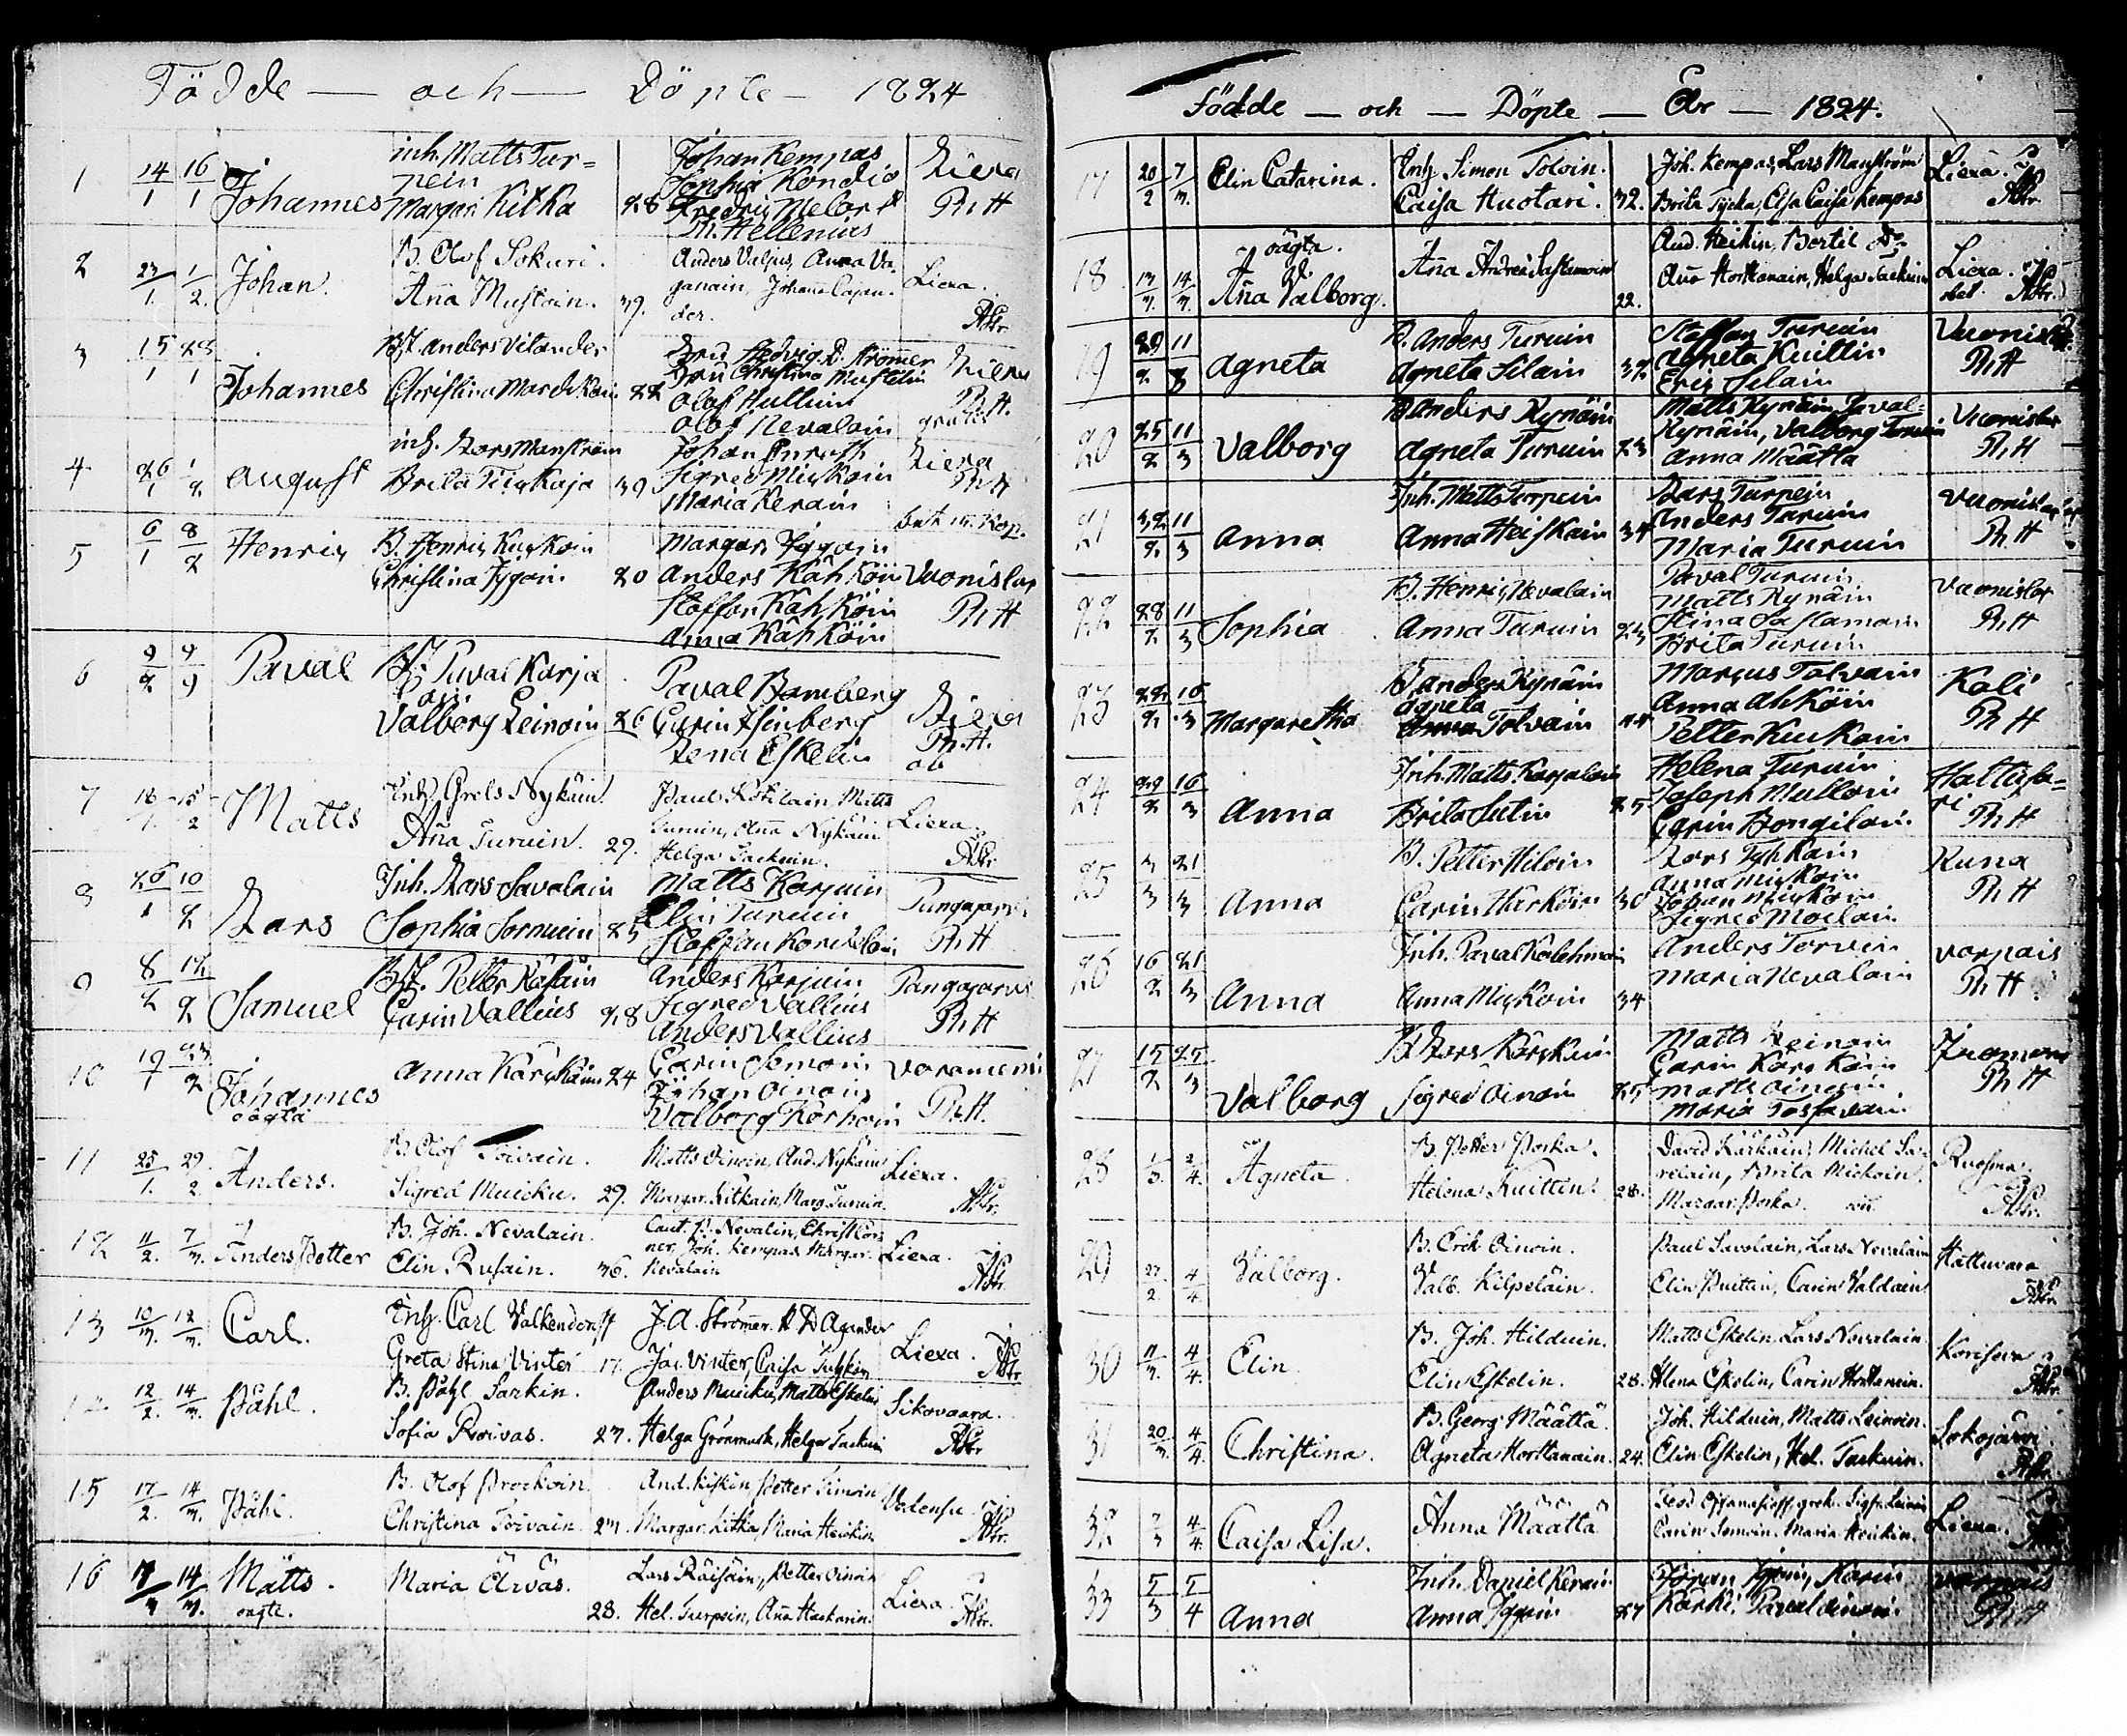 Födde — och — Döpte — 1824
1 14/1 16/1 Johannes inh. Matts Tur=
pein
Margar. Kitka 28
Johan Kempas
Sophia Kondio
Th. Hellenius
Liexa
Th. H
2 23/1. 1/2. Johan. B. Olof Sokuri.
Anna Mustoin. 39.
Anders Valjus, Anna Va-
ganain, Johan Cajan-
der.
Liexa.
3 15/1 28/1 Johannes Bst. Anders Vilander
Christina Mardikain 22
Fru Hedvig D. Strömer
Fru Christina Mustelin
Olof Hultuin
Olof Nevalain
Liexa
Th. H.
gratis
4 26/1 1/2 August inh. Lars Manström
Brita Tickaja 39
Johan Enroth
Sigred Mickoin
Maria Kerain
Liexa
Th. H
bet. 15. Kop.
5 6/1 8/2 Henric B. Henric Kuckoin
Christina Iygain. 20
Margar. Iygain
Anders Kähköin
Staffan Kähköin
Anna Kähköin
Vuonislax
Th. H
6 Paval Bst. Paval Karja
lain
Valborg Leinoin 26
Paval Bomberg
Carin Isenberg
Lena Eskelin
Liexa
Th. H.
7 18/1. 15/2 Matts Inh. Grels Nykäin
Anna Turuin. 29.
Paul Kokilain, Matts
Turuin, Anna Nykäin
Helga Tackuin.
Liexa.
8 26/1 10/2 Lars Inh. Lars Savalain
Sophia Sornuin 25
Matts Karjuin
Elin Turuin
Staffan Kordelain
Pangajarvi
Th. H
9 8/2 12/2 Samuel Bst. Petter Räsäin
Carin Vallius 28
Anders Karjuin
Sigred Vallius
Anders Vallius
Pangajarvi
Th. H
10 19/1 23/2 Johannes
oägta
Anna Kärckäin 24
Carin Simoin
Johan Oinoin
Valborg Korhoin
Varameni
Th. H.
11 25/1. 29/2. Anders. B. Olof Toivain.
Sigred Muicku. 29.
Matts Oinoin, And. Nykäin
Margar. Kitkain, Marg. Turuin.
Liexa.
12 11/2. 7/3. Anders Petter B. Joh. Nevalain.
Elin Rusain. 36.
Cant. P. Nevalin, Christ. Cör-
ner, Joh. Kempas, Margar.
Nevalain
Liexa.
13 10/3. 12/3. Carl. Inh. Carl Valkendorff
Greta Stina Vinter 17.
J. A. Strömer. H D Agander
Jac. Vinter, Caisa Tuhkin
Liexa.
12/2. 14/3. Påhl. B. Påhl Sarkin.
Sofia Roivas. 27.
Anders Muicku, Matts Eskelin
Helga Grönmark, Helga Tackuin
Sikovaara.
15 17/2. 14/3. Påhl. B. Olof Prockoin.
Christina Toivain. 23.
And. Kiskin, Petter Simoin
Margar. Kitka, Maria Heickin
Vedensu.
16 14/3. Matts.
oägta.
Maria Ärväs. 28.
Lars Räisäin, Petter Oinoin
Hel. Turpein, Anna Hackarin.
Liexa.
Födde — och — Döpte — År — 1824.
17 20/2 7/3. Elin Catarina. Inh. Simon Tolvin.
Caisa Huotari. 32.
Joh. Kempas, Lars Manström
Brita Tycka, Elsa Caisa Kempas
Liexa.
18 13/3. 14/3. oägta.
Anna Valborg.
22.
And. Heikin, Bertil Do
Anna Horttanain, Helga Tackuin
Liexa.
bet.
19 29/2 11/3 Agneta B. Anders Turuin
Agneta Silain 32
Staffan Turuin
Agneta Kuittin
Eric Silain
Vuonislax
Th. H
20 25/2 11/3 Valborg B Anders Kynäin
Agneta Turuin 23
Matts Kynäin, Paval=
Kynäin, Valborg Turuin
Anna Määtta
Vuonislax
Th. H
21 11/3 Anna Inh. Matts Turpein
Anna Heiskain 34
Lars Turpein
Anders Turuin
Maria Turuin
Vuonislax
Th. H
22 28/2 11/3 Sophia B. Henric Nevalain
Anna Turuin 23
Paval Turuin
Matts Kynäin
Stina Sastamoin
Brita Turuin
Vuonislax
Th. H
23 Margaretha B Anders Kynäin
Agneta
Tolvain 44
Marcus Tolvain
Anna Ahköin
Petter Kuckoin
Koli
Th. H
24 Anna Inh. Matts Karjalain
Brita Sutin 25
Helena Turuin
Joseph Mulloin
Carin Bongilain
Hattusa=
ri
Th. H
25 3/3 21/3 Anna B. Petter Hiloin
Carin Harköin 30
Lars Tyhkäin
Anna Mickoin
Johan Mickoin
Sigred Moilain
Runa
Th. H
26 16/2 21/3 Anna Inh. Paval Kalehmain
Anna Mickoin 34
Anders Torvin
Maria Nevalain
Varpais
Th. H
27 15/2 25/3 Valborg B Lars Kärckäin
Sigred Oinoin 25
Matts Leinoin
Carin Kärckäin
Matts Oinoin
Maria Tossavain
Th. H
28 1/3. 2/4. Agneta. B. Petter Porka.
Helena Kuittin. 28.
David Kärkäin, Michel Sa-
relain, Brita Mickoin.
Margar. Porka.
Ruosma.
29 27/2. 4/4. Valborg. B. Erik Oinoin.
Valb. Kilpeläin.
Paul Savolain, Lars Nevalain
Elin Puittin, Carin Valdain.
Hattuvara
30 11/3. 4/4. Elin B. Joh. Hilduin.
Elin Eskelin. 28.
Matts Eskelin, Lars Nevalain.
Alena Eskelin, Carin Horttanain.
Koriseva
31 20/3. 4/4. Christina. B. Georg Määttä.
Agneta Horttanain. 24.
Joh. Hilduin, Matts Leinoin.
Elin Eskelin, Hel. Tackuin.
Lokojärvi
32 7/3 4/4. Caisa Lisa. Anna Määttä
Feod. Offanasieff, grek. Sigfr. Leinoin
Carin Simoin. Maria Heickin.
Liexa.
33 5/3 5/4 Anna Inh. Daniel Kerain
Anna Iygain 27
Karin
Karhi. Paval Oinoin.
Varpais
Th. H